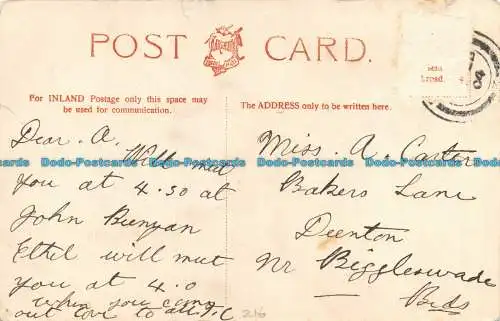 POST CARD.
For INLAND Postage only this space may
be used for communication.
The ADDRESS only to be written here.
Dear. A.
Will mut
you at 4.30 at
John Bunyan
Ethel will mut
you at 4.0
when you come
out love to all
Miss. A. Caster
Bakers Lane
Deenton
Nr Biggleswade
Beds
04
216
Dodo-Postcards Dodo-Postcards Dodo-Postcards Dodo-Postcards